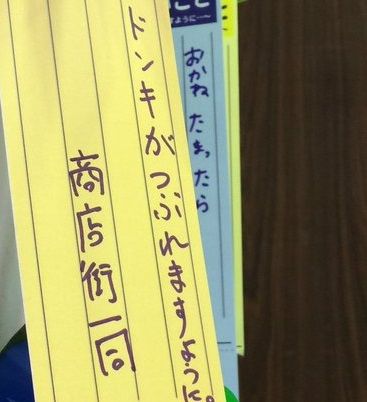 ドンキがつぶれますように。
商店街一同
おかね たまったら